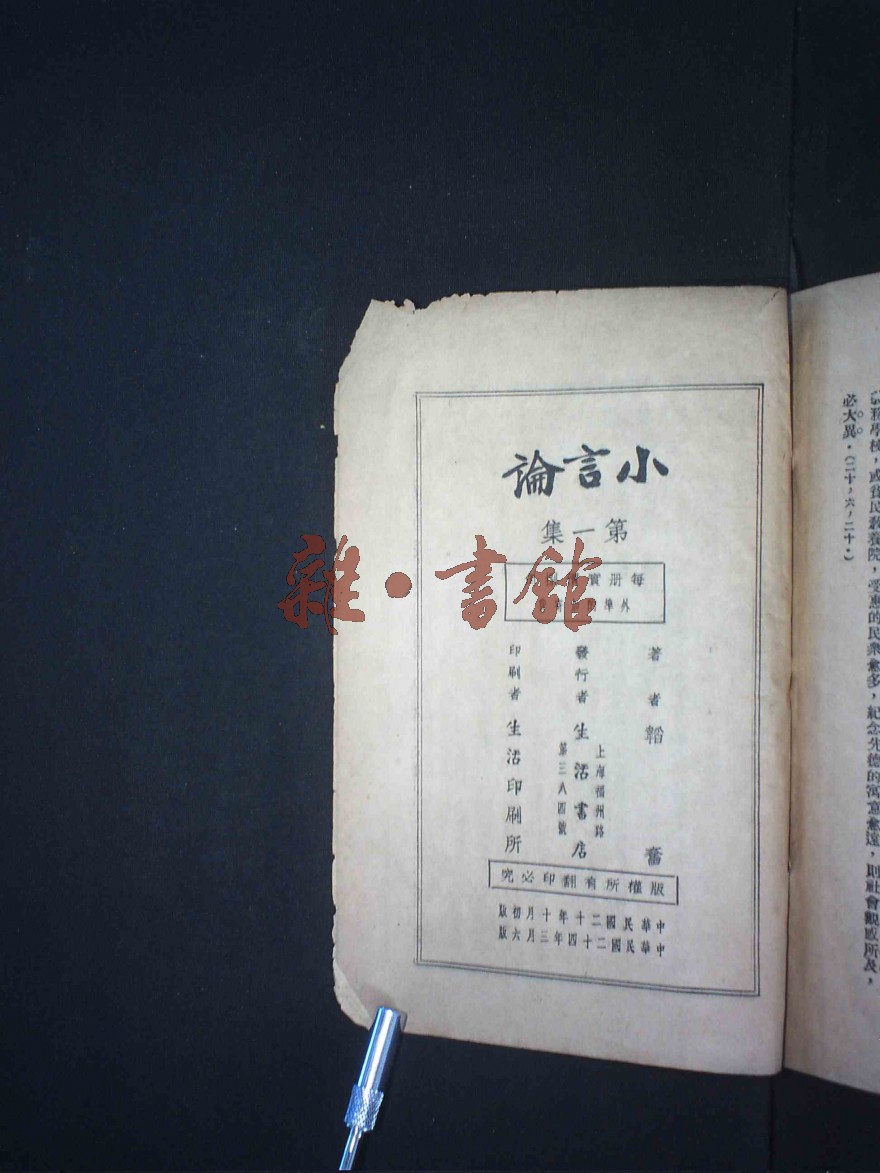 小言論
第一集
每册實
外埠
著者 韜奮
發行者 生活書店
上海福州路
第三八四號
印刷者 生活印刷所
版權所有翻印必究
中華民國二十年十月初版
中華民國二十四年三月六版
雜·書館
義務學校，或貧民教養院，受惠的民衆愈多，紀念先德的寓意愈遠，則社會觀感所及，
必大異。（二十，六，二十。）